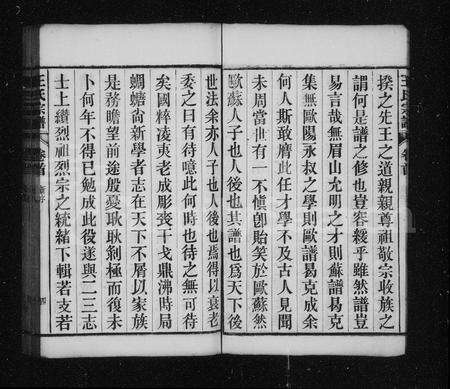 王氏宗譜
卷首
揆之先王之道親親尊祖敬宗收族之
謂何是譜之修也豈容緩乎雖然譜豈
易言哉無眉山允明之才則蘇譜曷克
集無歐陽永叔之學則歐譜曷克成余
何人斯敢膺此任才學不及古人見聞
未周當世有一不愼卽貽笑於歐蘇然
歐蘇人子也人後也其譜也爲天下後
世法余亦人子也人後也焉得以衰老
委之曰有待噫此何時也待之無可待
矣國粹凌夷老成彫喪干戈鼎沸時局
蜩螗尙新學者志在天下不屑以家族
是務瞻望前途殷憂耿耿剝極而復未
卜何年不得已勉成此役遂與二三志
士上纘烈祖烈宗之統緒下輯若支若
王氏宗譜
卷首